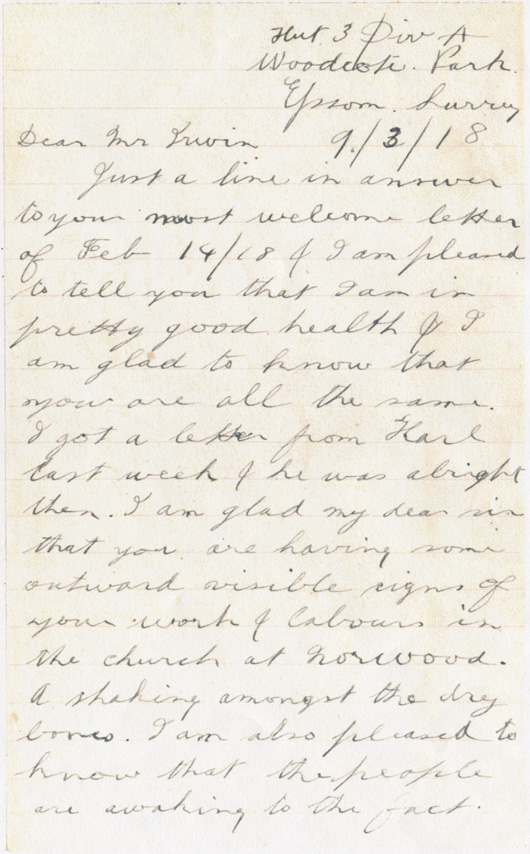 Hut 3 Div A
Woodcote. Park.
Epsom. Surrey
Dear Mr Irwin 9/3/18
Just a line in answer
to your most welcome letter
of Feb 14/18 & I am pleased
to tell you that I am in
pretty good health & I
am glad to know that
you are all the same.
I got a letter from Harl
last week & he was alright
then. I am glad my dear sir
that you are having some
outward visible signs of
your work & labours in
the church at Norwood.
A shaking amongst the dry
bones. I am also pleased to
know that the people
are awaking to the fact.